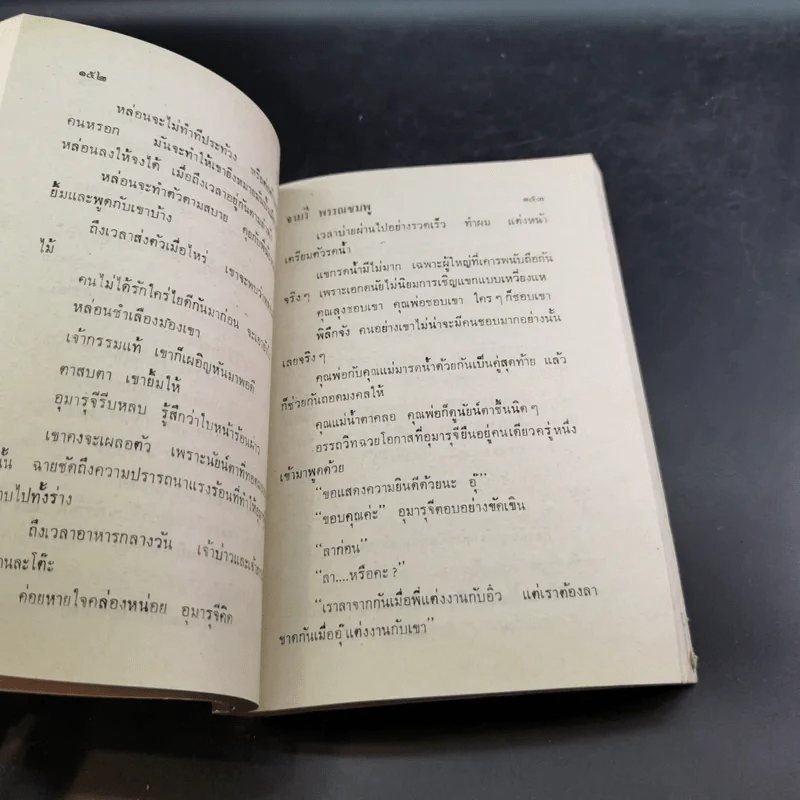 ๑๕๒
หล่อนจะไม่ทำทีประท้วง
คนหรอก มันจะทำให้เขายิ่งหมาย
หล่อนลงให้จงได้ เมื่อถึงเวลาอยู่กันตาม
หล่อนจะทำตัวตามสบาย
ยิ้มและพูดกับเขาบ้าง
ถึงเวลาส่งตัวเมื่อไหร่ เขาจะพบว่า
ไม้
คนไม่ได้รักใคร่ไยดีกันมาก่อน
หล่อนชำเลืองมองเขา
เจ้ากรรมแท้ เขาก็เผอิญหันมาพอดี
ตาสบตา เขายิ้มให้
อุมารุจีรีบหลบ รู้สึกว่าใบหน้าร้อนผ่าว
เขาคงจะเผลอตัว เพราะนัยน์ตาที่ทอด
นั้น ฉายชัดถึงความปรารถนาแรงร้อนที่ทำให้
าบไปทั้งร่าง
ถึงเวลาอาหารกลางวัน เจ้าบ่าวและเจ้า
านละโต๊ะ
ค่อยหายใจคล่องหน่อย อุมารุจีคิด
จามรี พรรณชมพู
๑๕๓
เวลาบ่ายผ่านไปอย่างรวดเร็ว ทำผม แต่งหน้า
เตรียมตัวรดน้ำ
แขกรดน้ำมีไม่มาก เฉพาะผู้ใหญ่ที่เคารพนับถือกัน
จริงๆ เพราะเอกดนัยไม่นิยมการเชิญแขกแบบเหวี่ยงแห
คุณลุงชอบเขา คุณพ่อชอบเขา ใครๆ ก็ชอบเขา
พิลึกจัง คนอย่างเขาไม่น่าจะมีคนชอบมากอย่างนั้น
เลยจริงๆ
คุณพ่อกับคุณแม่มารดน้ำด้วยกันเป็นคู่สุดท้าย แล้ว
ก็ช่วยกันถอดมงคลให้
คุณแม่น้ำตาคลอ คุณพ่อก็ดูนัยน์ตาชื้นนิดๆ
อรรถวิทฉวยโอกาสที่อุมารุจียืนอยู่คนเดียวครู่หนึ่ง
เข้ามาพูดด้วย
“ขอแสดงความยินดีด้วยนะ อุ๊”
“ขอบคุณค่ะ” อุมารุจีตอบอย่างขัดเขิน
“ลาก่อน”
“ลา....หรือคะ ?”
“เราลาจากกันเมื่อพี่แต่งงานกับอิ๋ว แต่เราต้องลา
ขาดกันเมื่ออุ๊แต่งงานกับเขา”